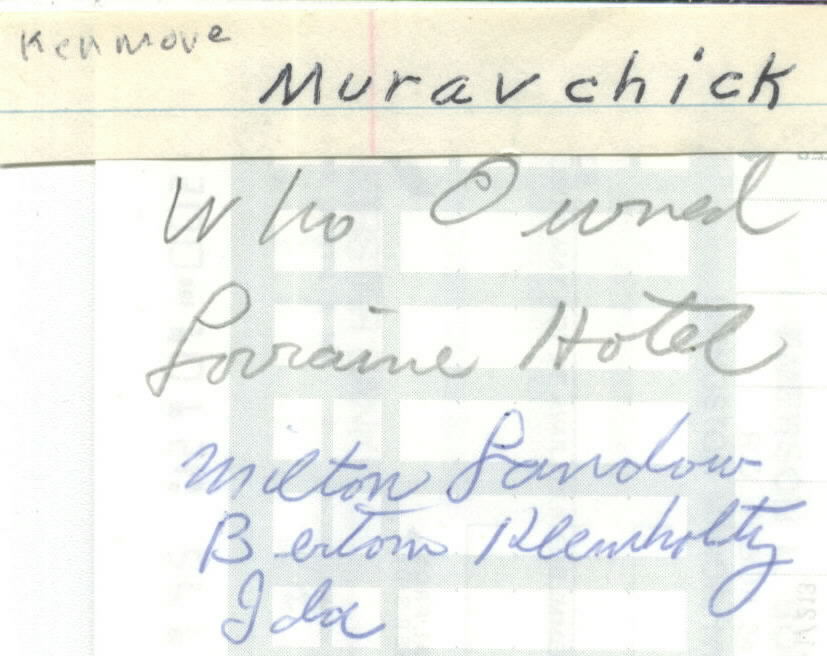 Kenmore
Muravchick
Who Owned
Lorraine Hotel
Milton Landow
Bertom Kleinholtz
Ida